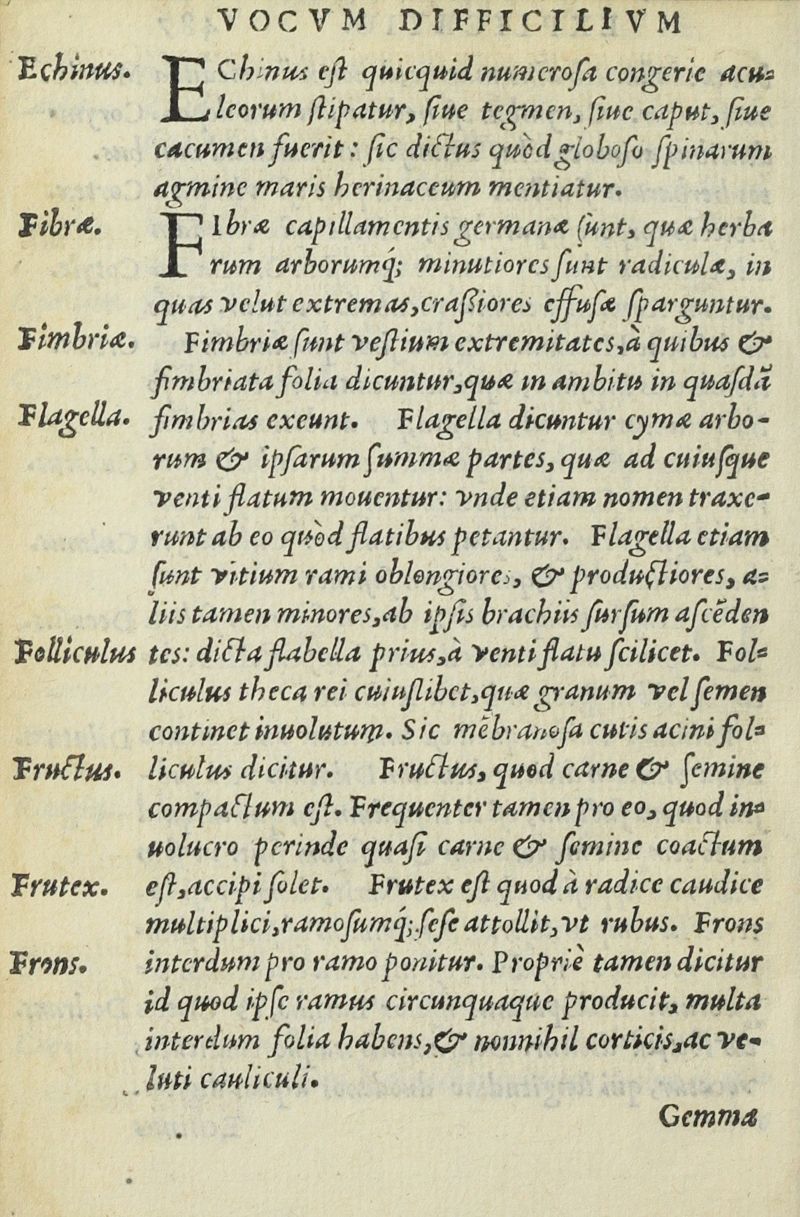 VOCVM DIFFICILIVM
Echinus. EChinus eſt quicquid numeroſa congerie acu-
leorum ſtipatur, ſiue tegmen, ſiue caput, ſiue
cacumen fuerit: ſic dictus quòd globoſo ſpinarum
agmine maris herinaceum mentiatur.
Fibræ. FIbræ capillamentis germanæ ſunt, quæ herba
rum arborumq́; minutiores ſunt radiculæ, in
quas velut extremas, craßiores effuſæ ſparguntur.
Fimbriæ. Fimbriæ ſunt veſtium extremitates, à quibus &
fimbriata folia dicuntur, quæ in ambitu in quaſdã
Flagella. fimbrias exeunt. Flagella dicuntur cymæ arbo-
rum & ipſarum ſummæ partes, quæ ad cuiuſque
venti flatum mouentur: vnde etiam nomen traxe-
runt ab eo quòd flatibus petantur. Flagella etiam
ſunt vitium rami oblongiores, & productiores, a-
liis tamen minores, ab ipſis brachiis ſurſum aſcẽden
Folliculus tes: dicta flabella prius, à venti flatu ſcilicet. Fol-
liculus theca rei cuiuſlibet, quæ granum vel ſemen
continet inuolutum. Sic mẽbranoſa cutis acini fol-
Fructus. liculus dicitur. Fructus, quod carne & ſemine
compactum eſt. Frequenter tamen pro eo, quod in-
uolucro perinde quaſi carne & ſemine coactum
Frutex. eſt, accipi ſolet. Frutex eſt quod à radice caudice
multiplici, ramoſumq́; ſeſe attollit, vt rubus. Frons
Frons. interdum pro ramo ponitur. Propriè tamen dicitur
id quod ipſe ramus circunquaque producit, multa
interdum folia habens, & nonnihil corticis, ac ve-
luti cauliculi.
Gemma